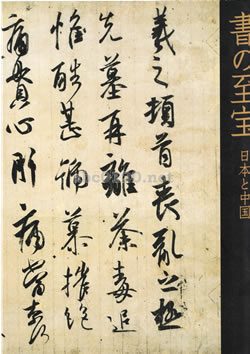 羲之頓首喪亂之極
先墓再離荼毒追
惟酷甚號慕摧絕
痛貫心肝痛當奈
書の至宝
日本と中国